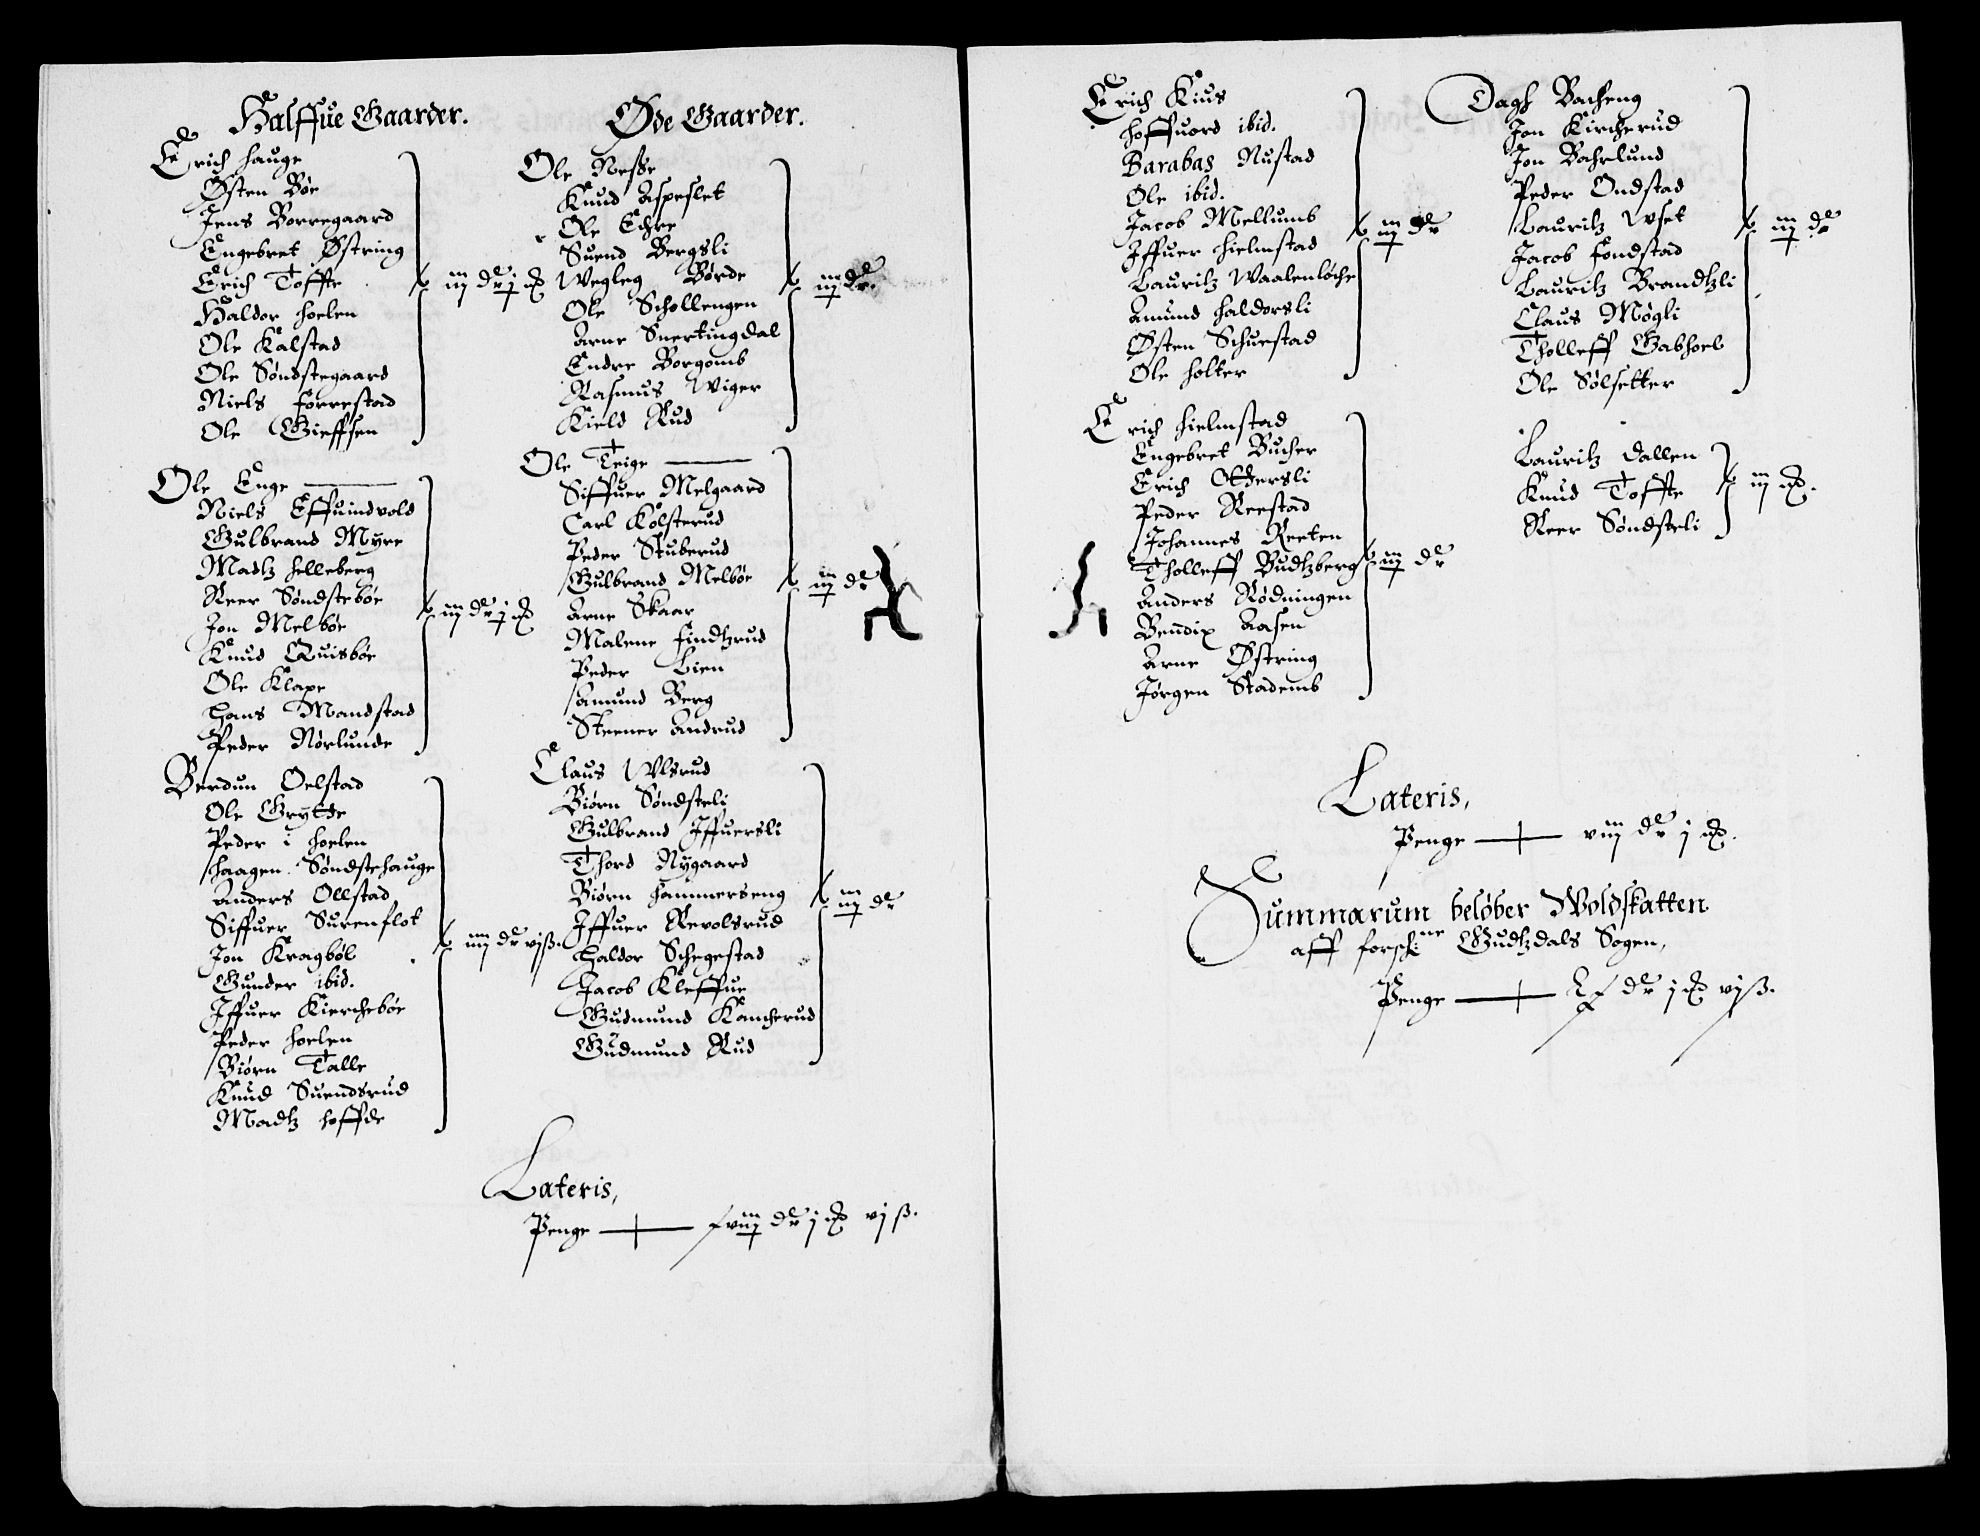 Halffue Gaarder.
Erich Hauge
Østen Bøe
Jens Borregaard
Engebret Østring
Erich Toffte
Haldor Hoelen
Ole Kalstad
Ole Søndstegaard
Niels Forrestad
Ole Gieffsen
iiij dr j
Ole Enge
Niels Effuindvold
Gulbrand Myre
Madtz Helleberg
Reer Søndstebøe
Jon Melbøe
Knud Quisbøe
Ole Klape
Hans Mandstad
Peder Nørlunde
iiij dr j
Berdun Oelstad
Ole Grytte
Peder i Hoelen
Haagen Søndstehauge
Anders Ollstad
Siffuer Surenflot
Jon Kragbøl
Gunder ibid.
Iffuer Kierchebøe
Peder Hoelen
Biørn Talle
Knud Suendsrud
Madtz Hoffde
iiij dr vj ß.
Øde Gaarder.
Ole Nesse
Knud Aspeslet
Ole Echre
Suend Bergsli
Wegleg Børde
Ole Schollengen
Arne Snertingdal
Endre Borgomb
Rasmus Wiger
Kield Rud
iij dr.
Ole Teige
Siffuer Melgaard
Carl Kolsterud
Peder Stuberud
Gulbrand Melbøe
Arne Skaar
Malene Findtzrud
Peder Lien
Amund Berg
Steener Andrud
iij dr
Claus Ulsrud
Biørn Søndsteli
Gulbrand Iffuersli
Thord Nygaard
Biørn Hammerseng
Iffuer Revolsrud
Haldor Schegestad
Jacob Kleffue
Gudmund Kancherud
Gudmund Rud
iij dr
Lateris,
Penge
dr j vj ß.
Erich Kius
Hoffuord ibid.
Barabas Rustad
Ole ibid.
Jacob Mellumb
Iffuer Hielmstad
Lauritz Waalenløche
Amund Haldorsli
Østen Schuestad
Ole Holter
iij dr
Erich Hielmstad
Engebret Bucher
Erich Ottersli
Peder Reestad
Johannes Reeten
Tholleff Budtzberg
Anders Rødningen
Bendix Aasen
Arne Østring
Jørgen Stademb
iij dr
Dagh Bacheng
Jon Kircherud
Jon Bahrlund
Peder Ondstad
Lauritz Uset
Jacob Fondstad
Lauritz Brandtzli
Claus Møgli
Tholleff Gabhoel
Ole Sølsetter
iij dr
Lauritz Dallen
Knud Toffte
Reer Søndsteli
iij
Lateris,
Penge viij dr j
Summarum beløber Woldskatten
aff forschne Gudtzdals Sogen,
Penge dr j vj ß.